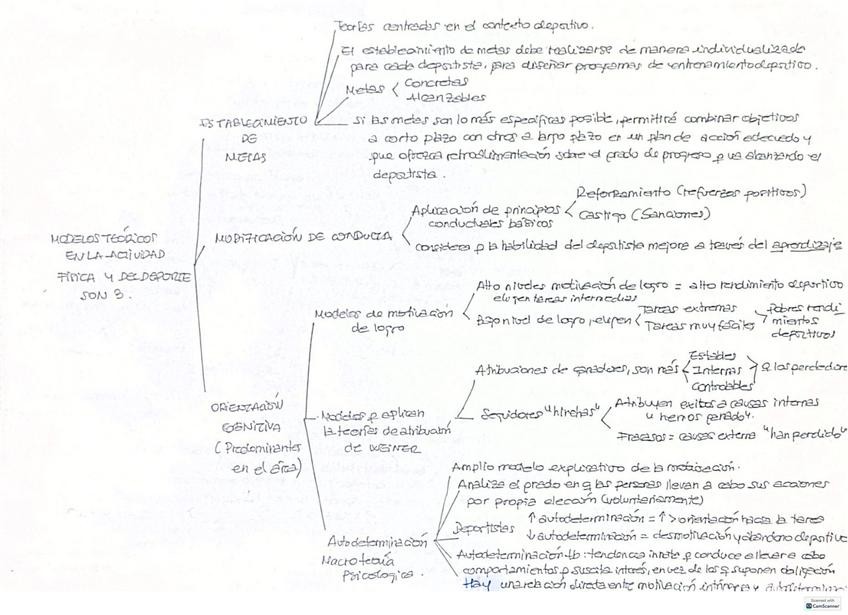 Teorías centradas en el contexto deportivo.
El establecimiento de metas debe realizarse de manera individualizada
para cada deportista, para diseñar programas de entrenamiento deportivo.
Metas
Concretas
Alcanzables
Si las metas son lo más específicas posible, permitirá combinar objetivos
a corto plazo con otros a largo plazo en un plan de acción adecuado y
que ofrezca retroalimentación sobre el grado de progreso q va alcanzando el
deportista.
ESTABLECIMIENTO
DE
METAS
MODELOS TEÓRICOS
EN LA ACTIVIDAD
FÍSICA Y DEL DEPORTE
SON 3.
MODIFICACIÓN DE CONDUCTA
Aplicación de principios
conductuales básicos
Reforzamiento (refuerzos positivos)
Castigo (Sanciones)
Considera q la habilidad del deportista mejore a través del aprendizaje
ORIENTACIÓN
COGNITIVA
(Predominantes
en el área)
Modelos de motivación
de logro
Alto niveles motivación de logro = alto rendimiento deportivo
eligen tareas intermedias
Bajo nivel de logro, eligen
Tareas extremas
Tareas muy fáciles
Pobres rendi
mientos
deportivos
Modelos q aplican
la teorías de atribución
de WEINER
Atribuciones de ganadores, son más
Estables
Internas
Controlables
q los perdedore
Seguidores "hinchas"
Atribuyen exitos a causas internas
"hemos ganado".
Fracasos = causas externa "han perdido"
Autodeterminación
Macroteoría
Psicologica.
Amplio modelo explicativo de la motivación.
Analiza el grado en q las personas llevan a cabo sus acciones
por propia elección (voluntariamente)
Deportistas
↑ autodeterminación = ↑ > orientación hacia la tarea
↓ autodeterminación = desmotivación y abandono deportivo
Autodeterminación tb: tendencia innata q conduce a llevar a cabo
comportamientos q suscita interés, en vez de los q suponen obligación
Hay una relación directa entre motivación intrínseca y
Scanned with
CamScanner